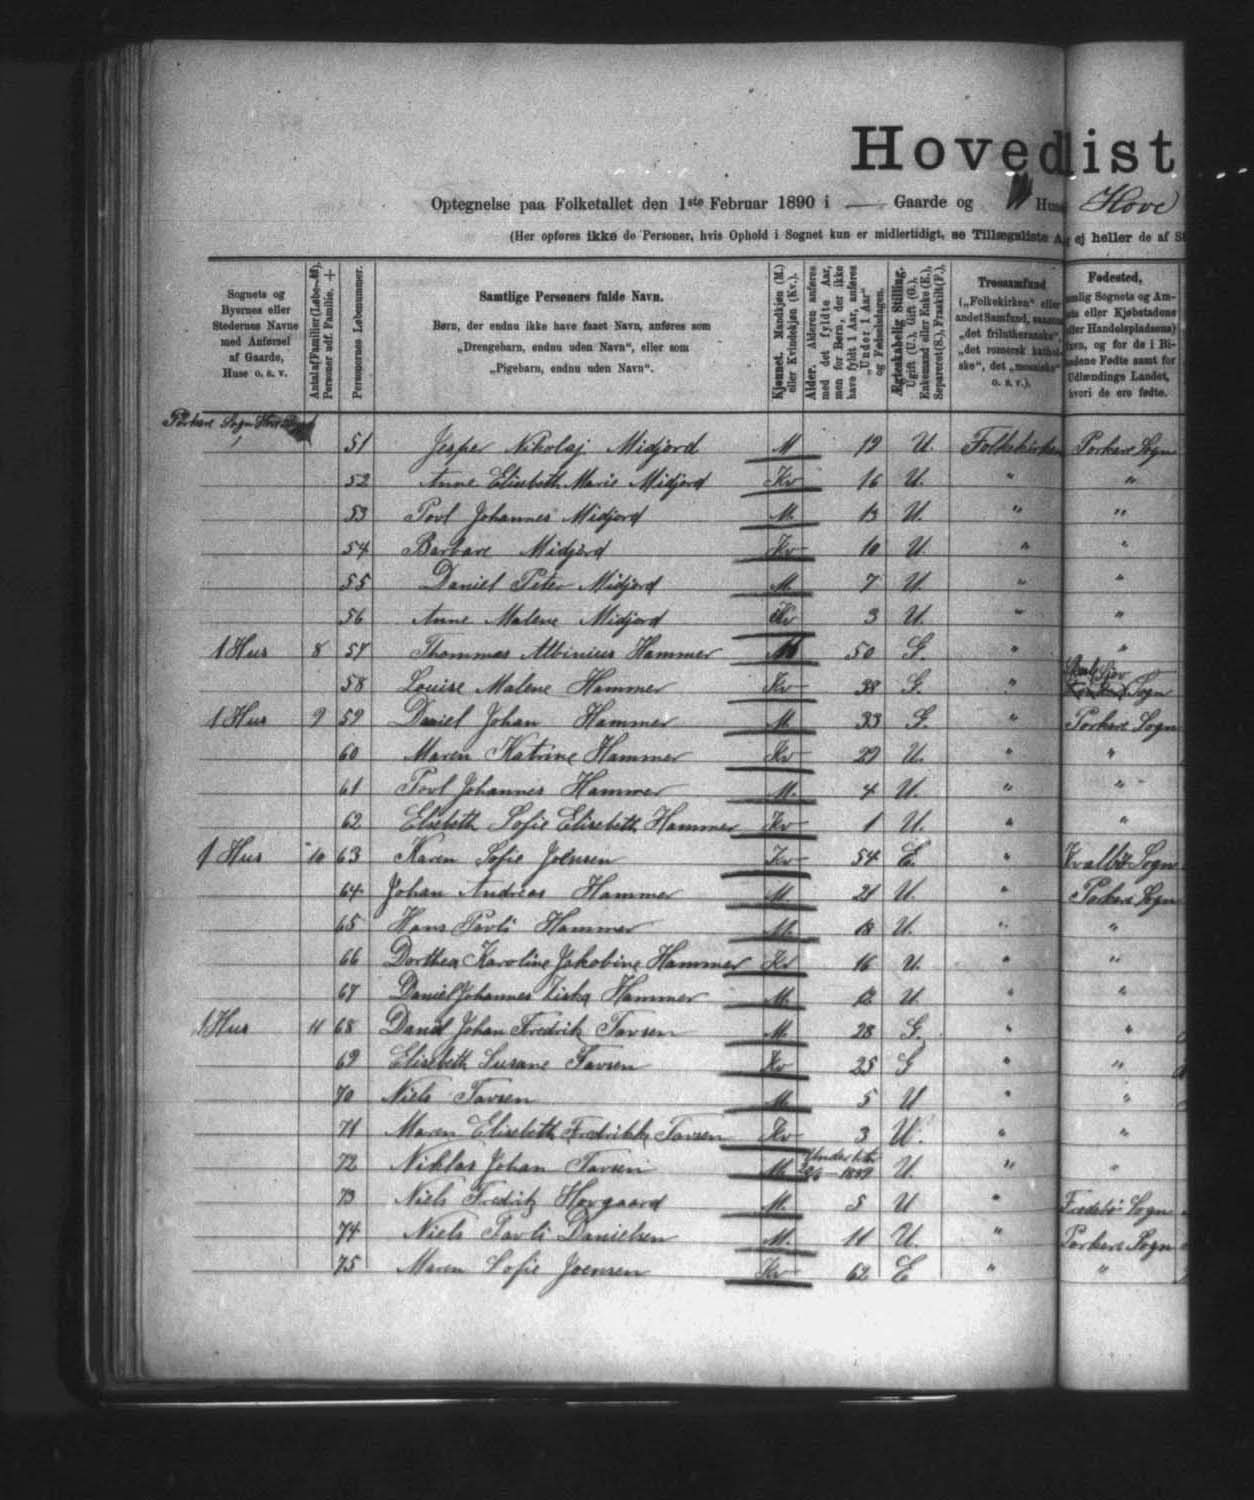 Hovedlist
Optegnelse paa Folketallet den 1ste Februar 1890 i — Gaarde og Huse Hove
(Her opføres ikke de Personer, hvis Ophold i Sognet kun er midlertidigt, se Tillægsliste A, ej heller de af St
Sognets og Byernes eller Stedernes Navne med Anførsel af Gaarde, Huse o. s. v.
Antal af Familier (Løbe-№). Personer udf. Familie. +
Personernes Løbenummer.
Samtlige Personers fulde Navn.
Børn, der endnu ikke have faaet Navn, anføres som
„Drengebarn, endnu uden Navn", eller som
„Pigebarn, endnu uden Navn".
Kjønnet. Mandkjøn (M.) eller Kvindekjøn (Kv.).
Alder. Alderen anføres med det fyldte Aar, men for Børn, der ikke have fyldt 1 Aar, anføres „Under 1 Aar" og Fødselsdagen.
Ægteskabelig Stilling. Ugift (U.), Gift (G.), Enkemand eller Enke (E.), Separeret (S.), Fraskilt (F.).
Trossamfund („Folkekirken" eller andet Samfund, saasom „det frilutheranske", „det romersk katholske", det „mosaiske" o. s. v.).
Fødested, nemlig Sognets og Amtets eller Kjøbstadens (eller Handelspladsens) Navn, og for de i Bilandene Fødte samt for Udlændinge Landet, hvori de ere fødte.
Porkere Sogn
51 Jesper Nikolaj Midjord M 19 U. Folkekirken Porkere Sogn
52 Anne Elisebeth Marie Midjord Kv 16 U. " "
53 Povl Johannes Midjord M. 13 U. " "
54 Barbare Midjord Kv 10 U. " "
55 Daniel Peter Midjord M. 7 U. " "
56 Anne Malene Midjord Kv 3 U. " "
1 Hus 8 57 Thommas Albinius Hammer M 50 G. " "
58 Louise Malene Hammer Kv 38 G. " Sogn
1 Hus 9 59 Daniel Johan Hammer M. 33 G. " Porkere Sogn
60 Maren Katrine Hammer Kv 29 U. " "
61 Povl Johannes Hammer M. 4 U. " "
62 Elsebeth Sofie Elisebeth Hammer Kv 1 U. " "
1 Hus 10 63 Karen Sofie Joensen Kv 54 E. " Kvalbø Sogn
64 Johan Andreas Hammer M. 21 U. " Porkere Sogn
65 Hans Pavli Hammer M. 18 U. " "
66 Dorthea Karoline Jakobine Hammer Kv 16 U. " "
67 Daniel Johannes Hammer M. 12 U " "
1 Hus 11 68 Daniel Johan Fredrik Tavsen M. 28 G. " "
69 Elisebeth Susane Tavsen Kv 25 G " "
70 Niels Tavsen M. 5 U " "
71 Maren Elisebeth Fredrikke Tavsen Kv 3 U. " "
72 Niklas Johan Tavsen M. Under 1 Aar 1889 U. " "
73 Niels Fredrik Hovgaard M. 5 U " Sogn
74 Niels Pavli Danielsen M. 11 U. " Porkere Sogn
75 Maren Sofie Joensen Kv 62 E " "